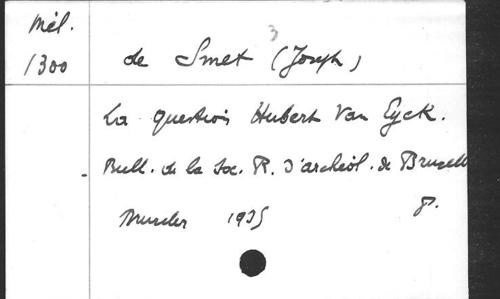 Mél.
1300
3
de Smet (Joseph)
La question Hubert Van Eyck.
- Bull. de la Soc. R. d'archéol. de Bruxell
1935 8°.